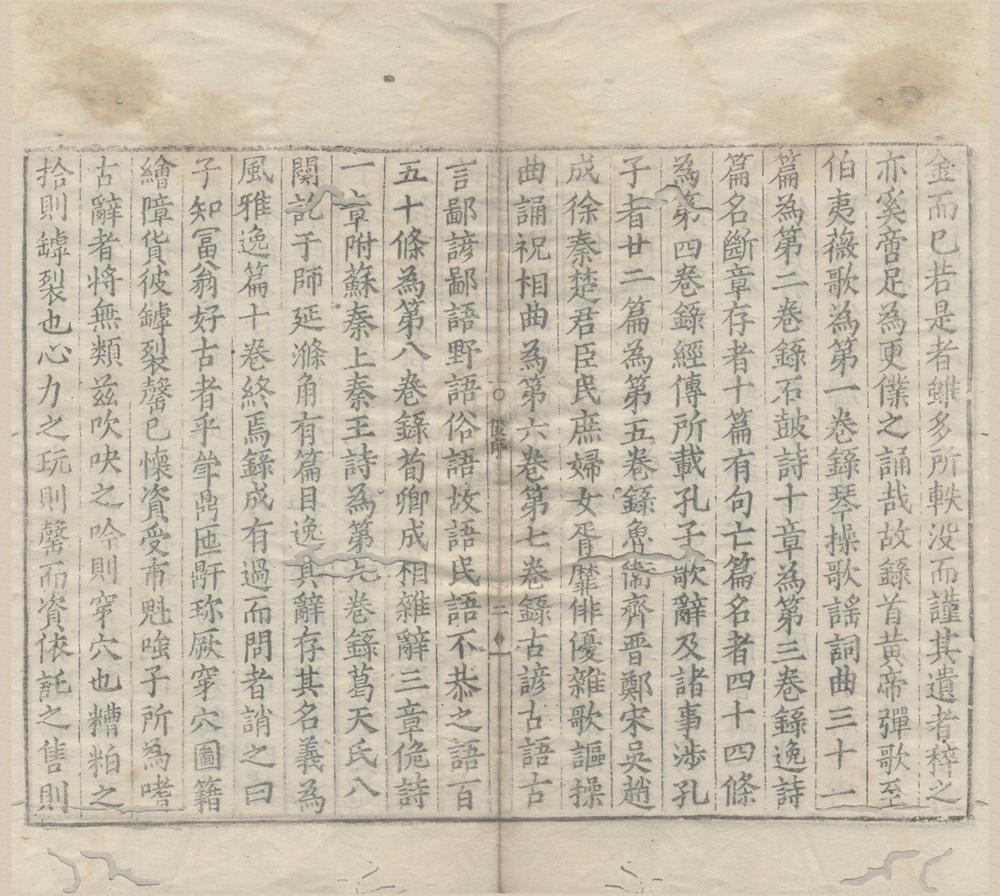 金而已若是者雖多所軼没而謹其遺者稡之
亦奚啻足為更僕之誦哉故錄首黄帝彈歌至
伯夷薇歌為第一卷錄琴操歌謡詞曲三十一
篇為第二卷錄石鼓詩十章為第三卷錄逸詩
篇名斷章存者十篇有句亡篇名者四十四條
為第四卷錄經傳所載孔子歌辭及諸事涉孔
子者廿二篇為第五卷錄魯衛齊晋鄭宋吳趙
成徐秦楚君臣民庶婦女胥靡俳優雜歌謳操
曲誦祝相曲為第六卷第七卷錄古諺古語古
後序
二
言鄙諺鄙語野語俗語故語民語不恭之語百
五十條為第八卷錄荀卿成相雜辭三章佹詩
一章附蘇秦上秦王詩為第九卷錄葛天氏八
闋訖于師延滌角有篇目逸其辭存其名義為
風雅逸篇十卷終焉錄成有過而問者誚之曰
子知冨翁好古者乎斝鼎匜鼾珎厥穿穴圖籍
繪障貨彼罅裂罄已懷資受市魁嗤子所為嗜
古辭者将無類兹吹吷之吟則穿穴也糟粕之
拾則罅裂也心力之玩則罄而資依託之售則